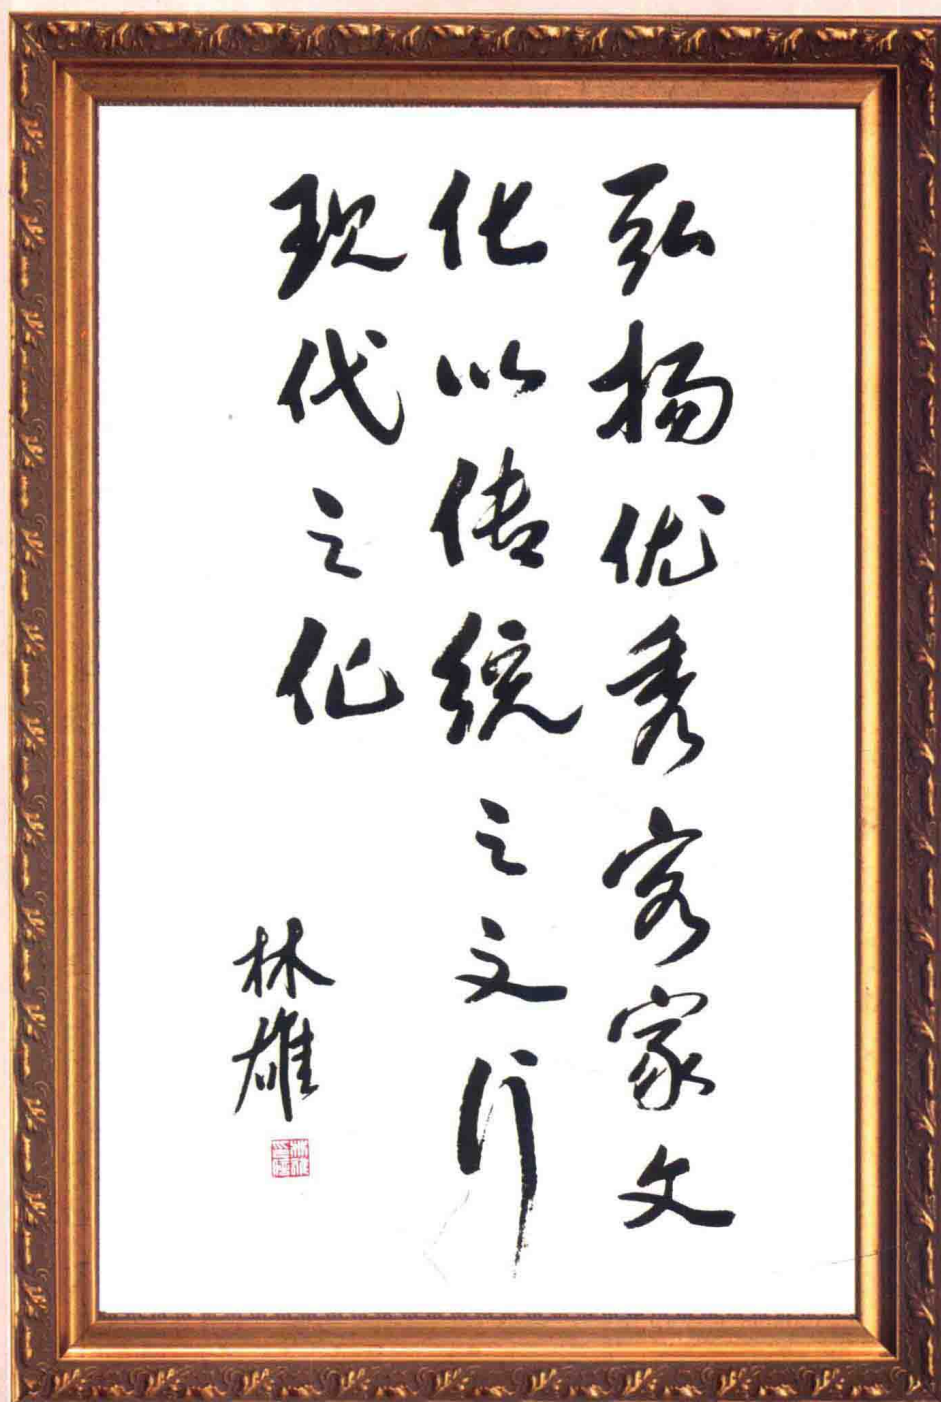 弘扬优秀客家文
化以传统之文行
现代之化
林雄